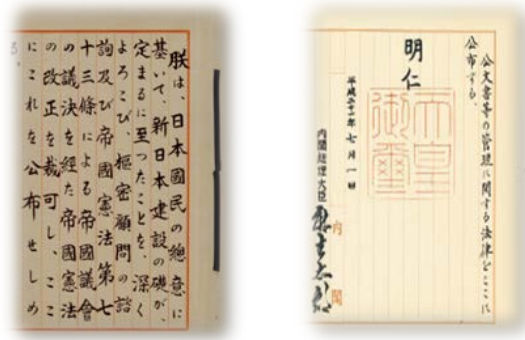 朕は、日本國民の總意に
基いて、新日本建設の礎が、
定まるに至つたことを、深く
よろこび、樞密顧問の諮
詢及び帝國憲法第七
十三條による帝國議會
の議決を經た帝國憲法
の改正を裁可し、ここ
にこれを公布せしめ
る。
公文書等の管理に関する法律をここに
公布する。
明仁
天皇御璽
平成二十一年七月一日
内閣総理大臣 麻生太郎
内閣